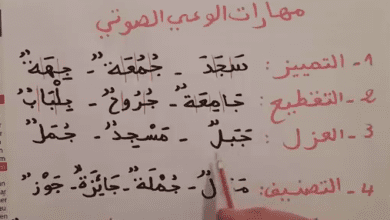 مهارات الوعي الصوتي
1- التمييز: سَجَدَ - جُمُعَةٌ - جِهَةٌ
2- التقطيع: جَامِعَةٌ - جُرُوحٌ - جِلْبَابٌ
3- العزل: جَبَلٌ - مَسْجِدٌ - جُمَلٌ
4- التصنيف: - جُمْلَةٌ - جَائِزَةٌ - جَوْزٌ